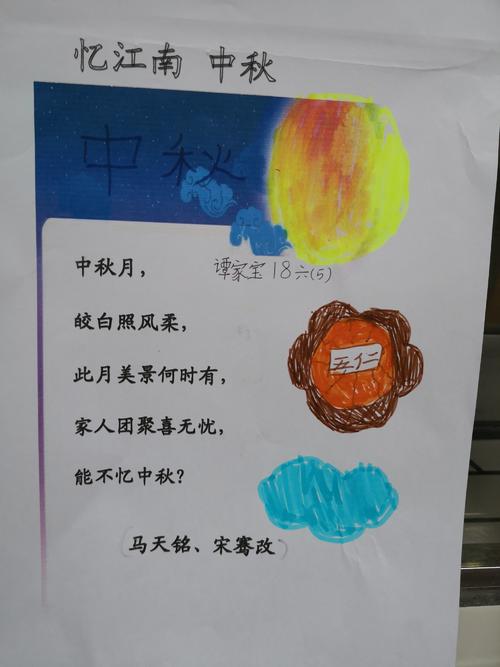 忆江南 中秋
中秋
中秋月，
谭家宝 18 六(5)
皎白照风柔，
此月美景何时有，
五仁
家人团聚喜无忧，
能不忆中秋？
（马天铭、宋骞改）